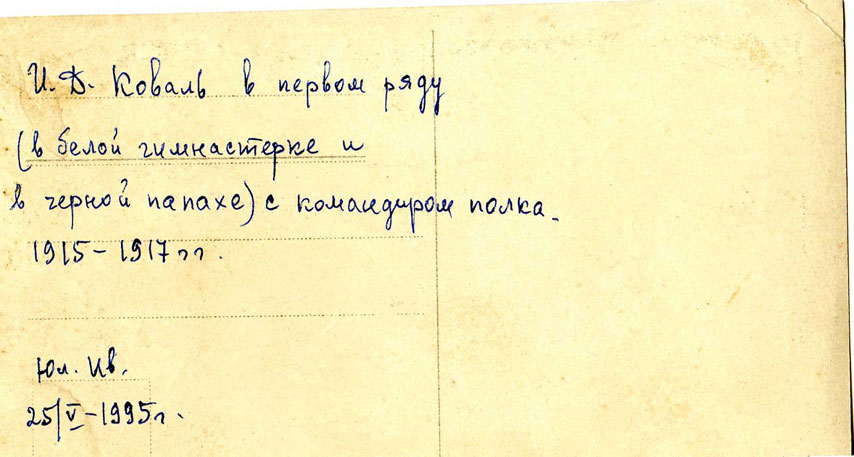 И. Д. Коваль в первом ряду
(в белой гимнастерке и
в черной папахе) с командиром полка.
1915 – 1917 гг.
Юл. Кв.
25/V – 1995г.